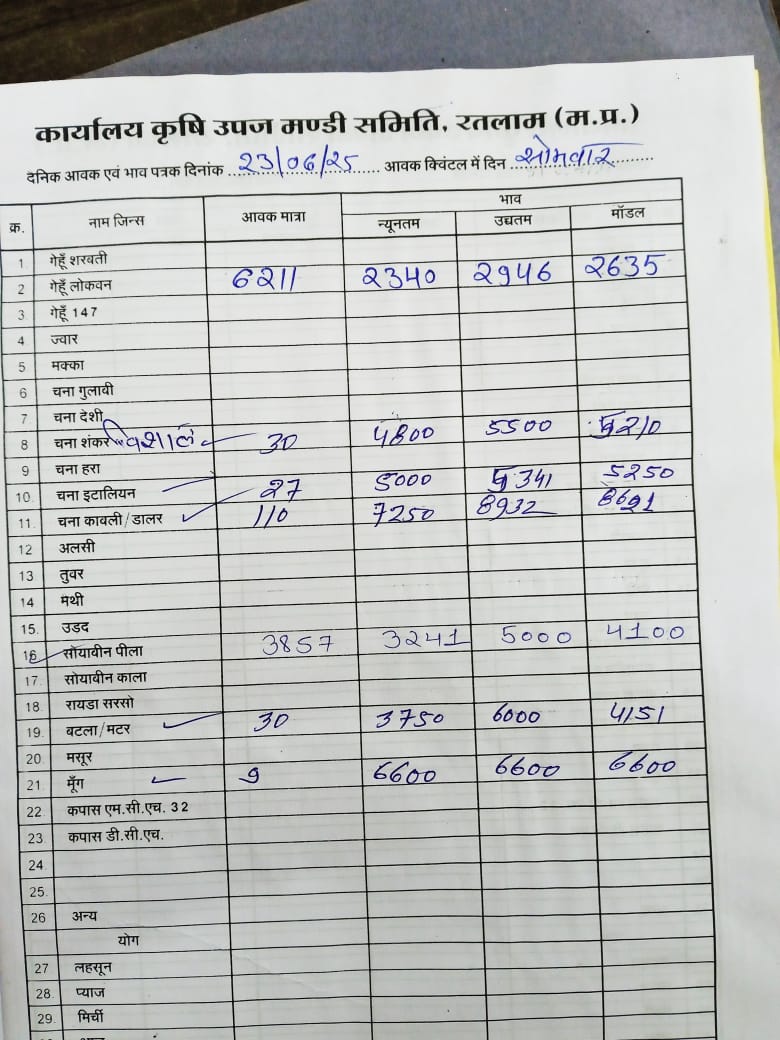 कार्यालय कृषि उपज मण्डी समिति, रतलाम (म.प्र.)
दैनिक आवक एवं भाव पत्रक दिनांक 23/06/25 आवक क्विंटल में दिन सोमवार
क्र. नाम जिन्स आवक मात्रा भाव
न्यूनतम उच्चतम मॉडल
1 गेहूँ शरबती
2 गेहूँ लोकवन 6211 2340 2946 2635
3 गेहूँ 147
4 ज्वार
5 मक्का
6 चना गुलाबी
7 चना देशी
8 चना शंकर विशाल 30 4800 5500 5210
9 चना हरा
10. चना इटालियन 27 5000 5341 5250
11. चना काबली/डालर 110 7250 8932 8691
12 अलसी
13 तुवर
14 मेथी
15. उडद
16 सोयाबीन पीला 3857 3241 5000 4100
17. सोयाबीन काला
18. रायडा सरसो
19. बटला/मटर 30 3750 6000 4151
20. मसूर
21. मूँग 9 6600 6600 6600
22. कपास एम.सी.एच. 32
23. कपास डी.सी.एच.
24.
25.
26 अन्य
योग
27 लहसून
28. प्याज
29. मिर्ची